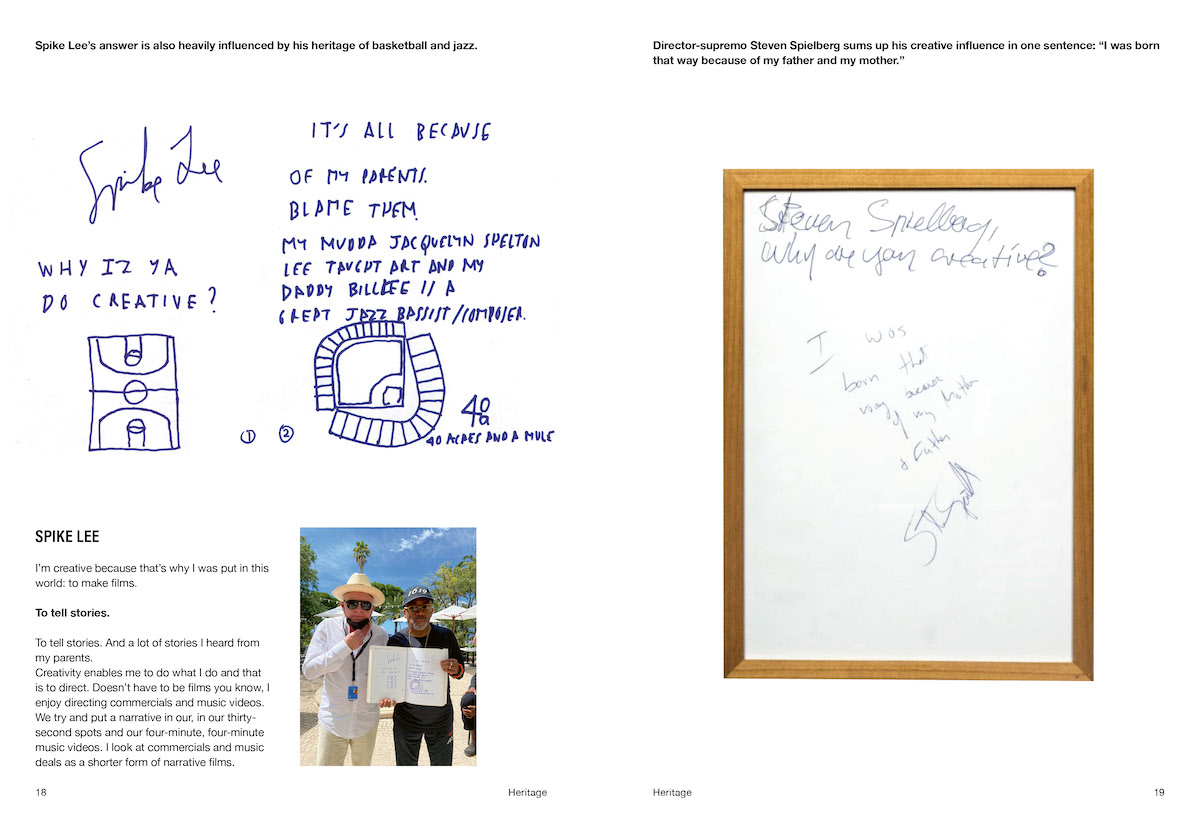 Spike Lee's answer is also heavily influenced by his heritage of basketball and jazz.
Spike Lee
WHY IZ YA
DO CREATIVE?
IT'S ALL BECAUSE
OF MY PARENTS.
BLAME THEM.
MY MUDDA JACQUELYN SHELTON
LEE TAUGHT ART AND MY
DADDY BILL LEE A
GREAT JAZZ BASSIST/COMPOSER.
① ②
40 ACRES AND A MULE
SPIKE LEE
I'm creative because that's why I was put in this
world: to make films.
To tell stories.
To tell stories. And a lot of stories I heard from
my parents.
Creativity enables me to do what I do and that
is to direct. Doesn't have to be films you know, I
enjoy directing commercials and music videos.
We try and put a narrative in our, in our thirty-
second spots and our four-minute, four-minute
music videos. I look at commercials and music
deals as a shorter form of narrative films.
1619
18
Heritage
Director-supremo Steven Spielberg sums up his creative influence in one sentence: “I was born
that way because of my father and my mother.”
Steven Spielberg,
Why are you creative?
I was
born that
way because
of my Mother
& Father
Heritage
19